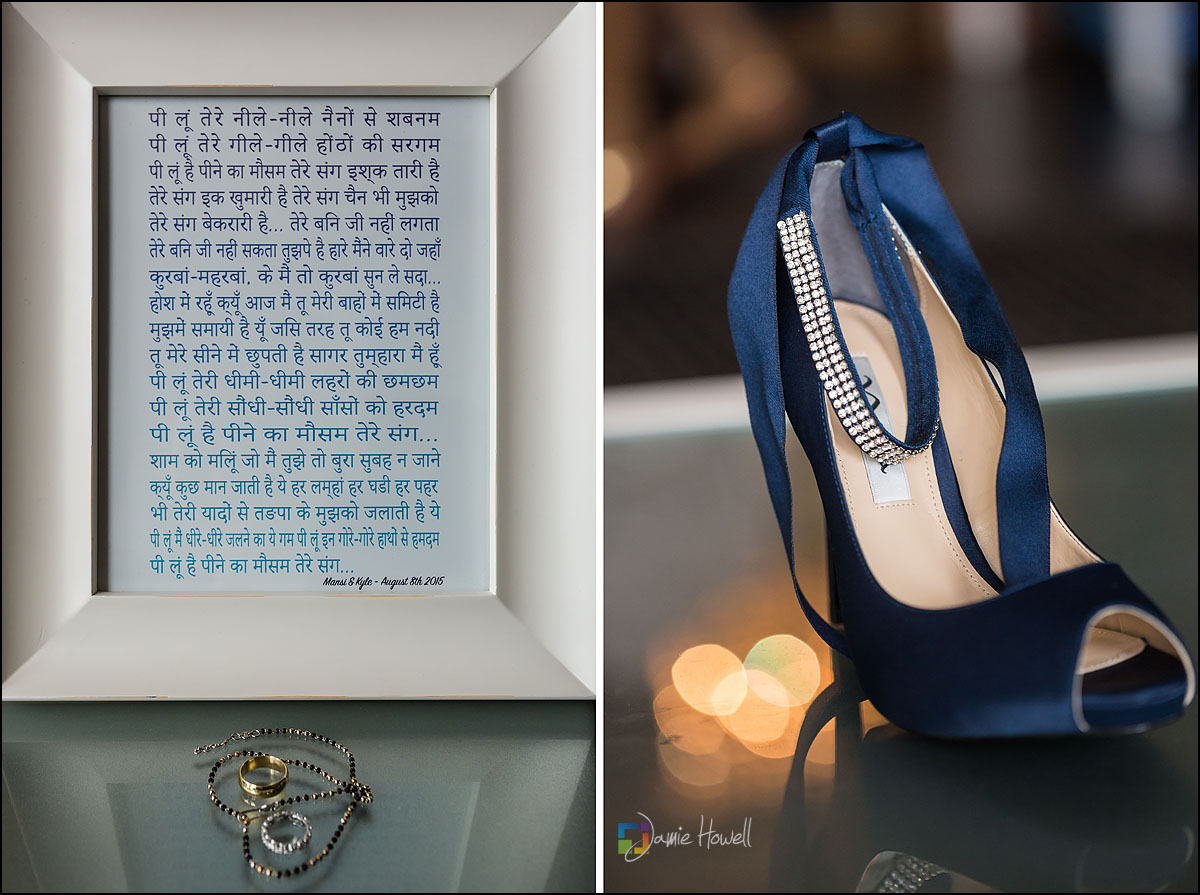 पी लूं तेरे नीले-नीले नैनों से शबनम
पी लूं तेरे गीले-गीले होंठों की सरगम
पी लूं है पीने का मौसम तेरे संग इश्क तारी है
तेरे संग इक खुमारी है तेरे संग चैन भी मुझको
तेरे संग बेकरारी है... तेरे बनि जी नही लगता
तेरे बनि जी नही सकता तुझपे है हारे मैंने वारे दो जहाँ
कुरबां-महरबां, के मैं तो कुरबां सुन ले सदा...
होश में रहूँ क्यूँ आज मैं तू मेरी बाहों मे समिटी है
मुझमें समायी है यूँ जसि तरह तू कोई हम नदी
तू मेरे सीने में छुपती है सागर तुम्हारा मैं हूँ
पी लूं तेरी धीमी-धीमी लहरों की छमछम
पी लूं तेरी सौंधी-सौंधी साँसों को हरदम
पी लूं है पीने का मौसम तेरे संग...
शाम को मलूिं जो मैं तुझे तो बुरा सुबह न जाने
क्यूँ कुछ मान जाती है ये हर लम्हां हर घडी हर पहर
भी तेरी यादों से तडपा के मुझको जलाती है ये
पी लूं मैं धीरे-धीरे जलने का ये गम पी लूं इन गोरे-गोरे हाथों से हमदम
पी लूं है पीने का मौसम तेरे संग...
Mansi & Kyle - August 8th 2015
Jamie Howell